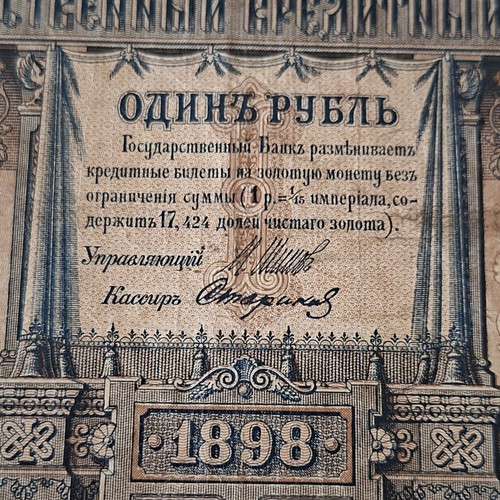 СТВЕННЫЙ КРЕДИТНЫЙ
ОДИНЪ РУБЛЬ
Государственный Банкъ размѣниваетъ
кредитные билеты на золотую монету безъ
ограниченія суммы (1 р.=1/15 имперіала, со-
держитъ 17,424 долей чистаго золота).
Управляющій И Шипов
Кассиръ Стариков
1898